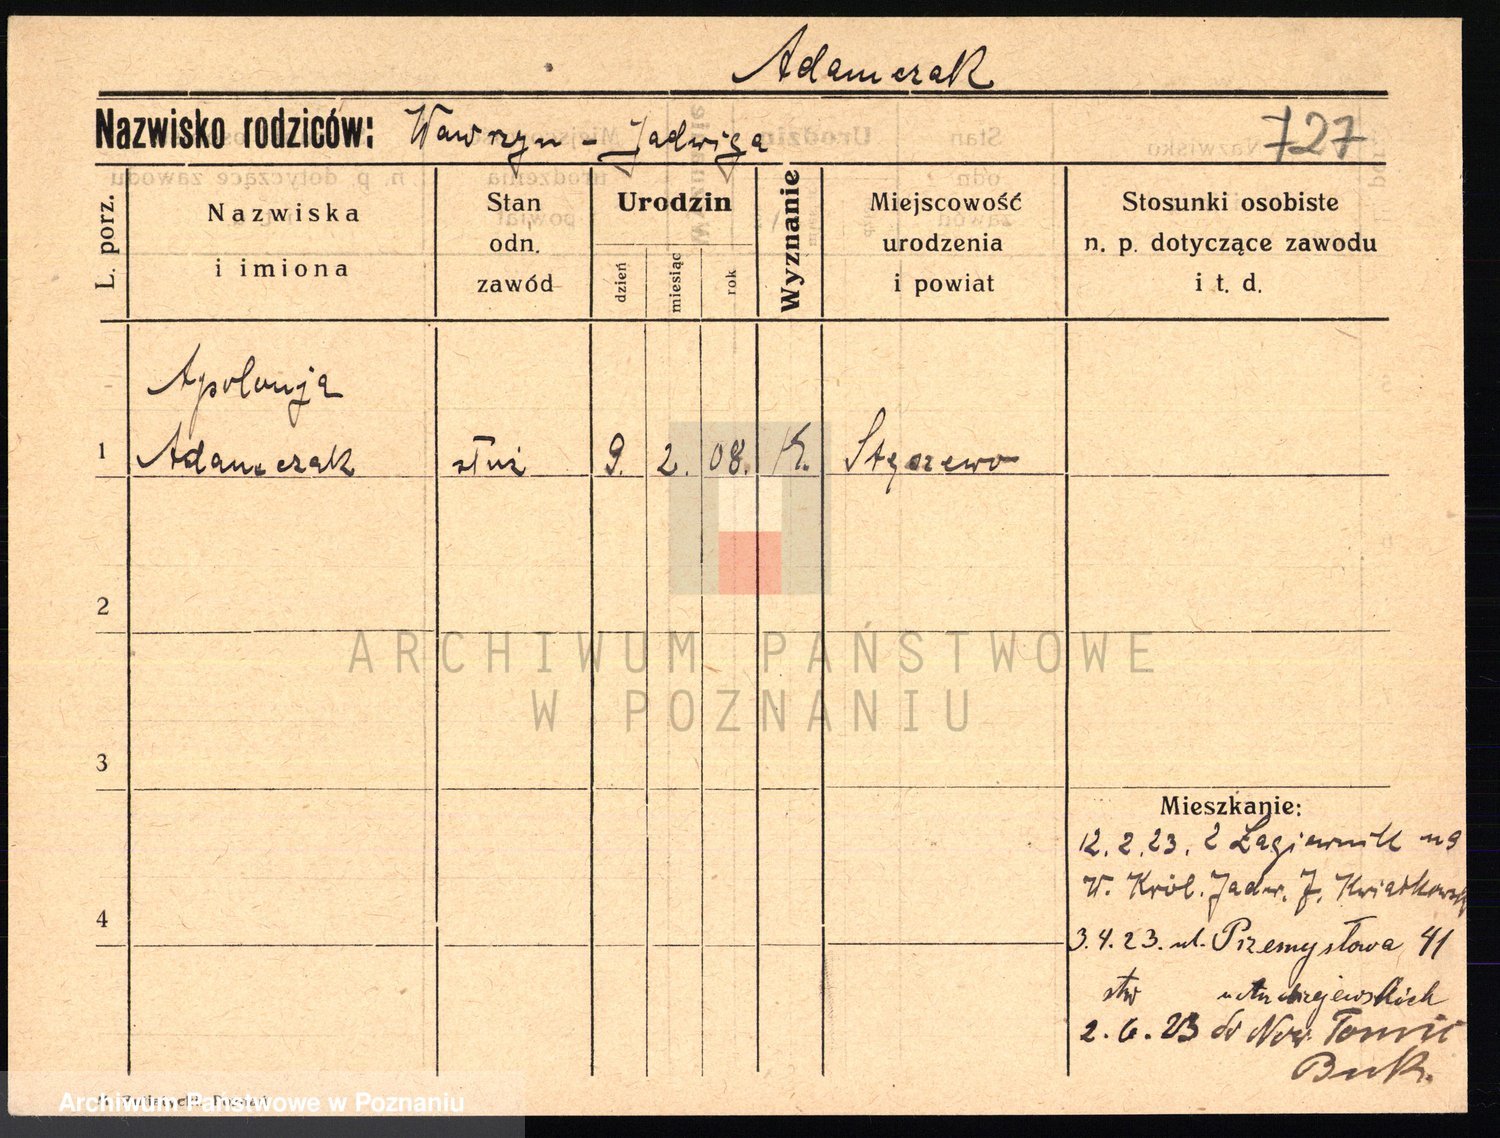 Adamczak
Nazwisko rodziców: Wawrzyn - Jadwiga
727
L. porz.
Nazwiska
i imiona
Stan
odn.
zawód
Urodzin
dzień
miesiąc
rok
Wyznanie
Miejscowość
urodzenia
i powiat
Stosunki osobiste
n. p. dotyczące zawodu
i t. d.
Apolonja
1 Adamczak służ 9. 2. 08. K. Stęszewo
2
ARCHIWUM PAŃSTWOWE
W POZNANIU
3
Mieszkanie:
12.2.23. z Łagiewnik
W. Król. Jadw. J. Kwiatkowski
4
3.4.23. ul. Przemysłowa 41
2.6.23 do Now Tomiś
Buk.
Poznań
Archiwum Państwowe w Poznaniu